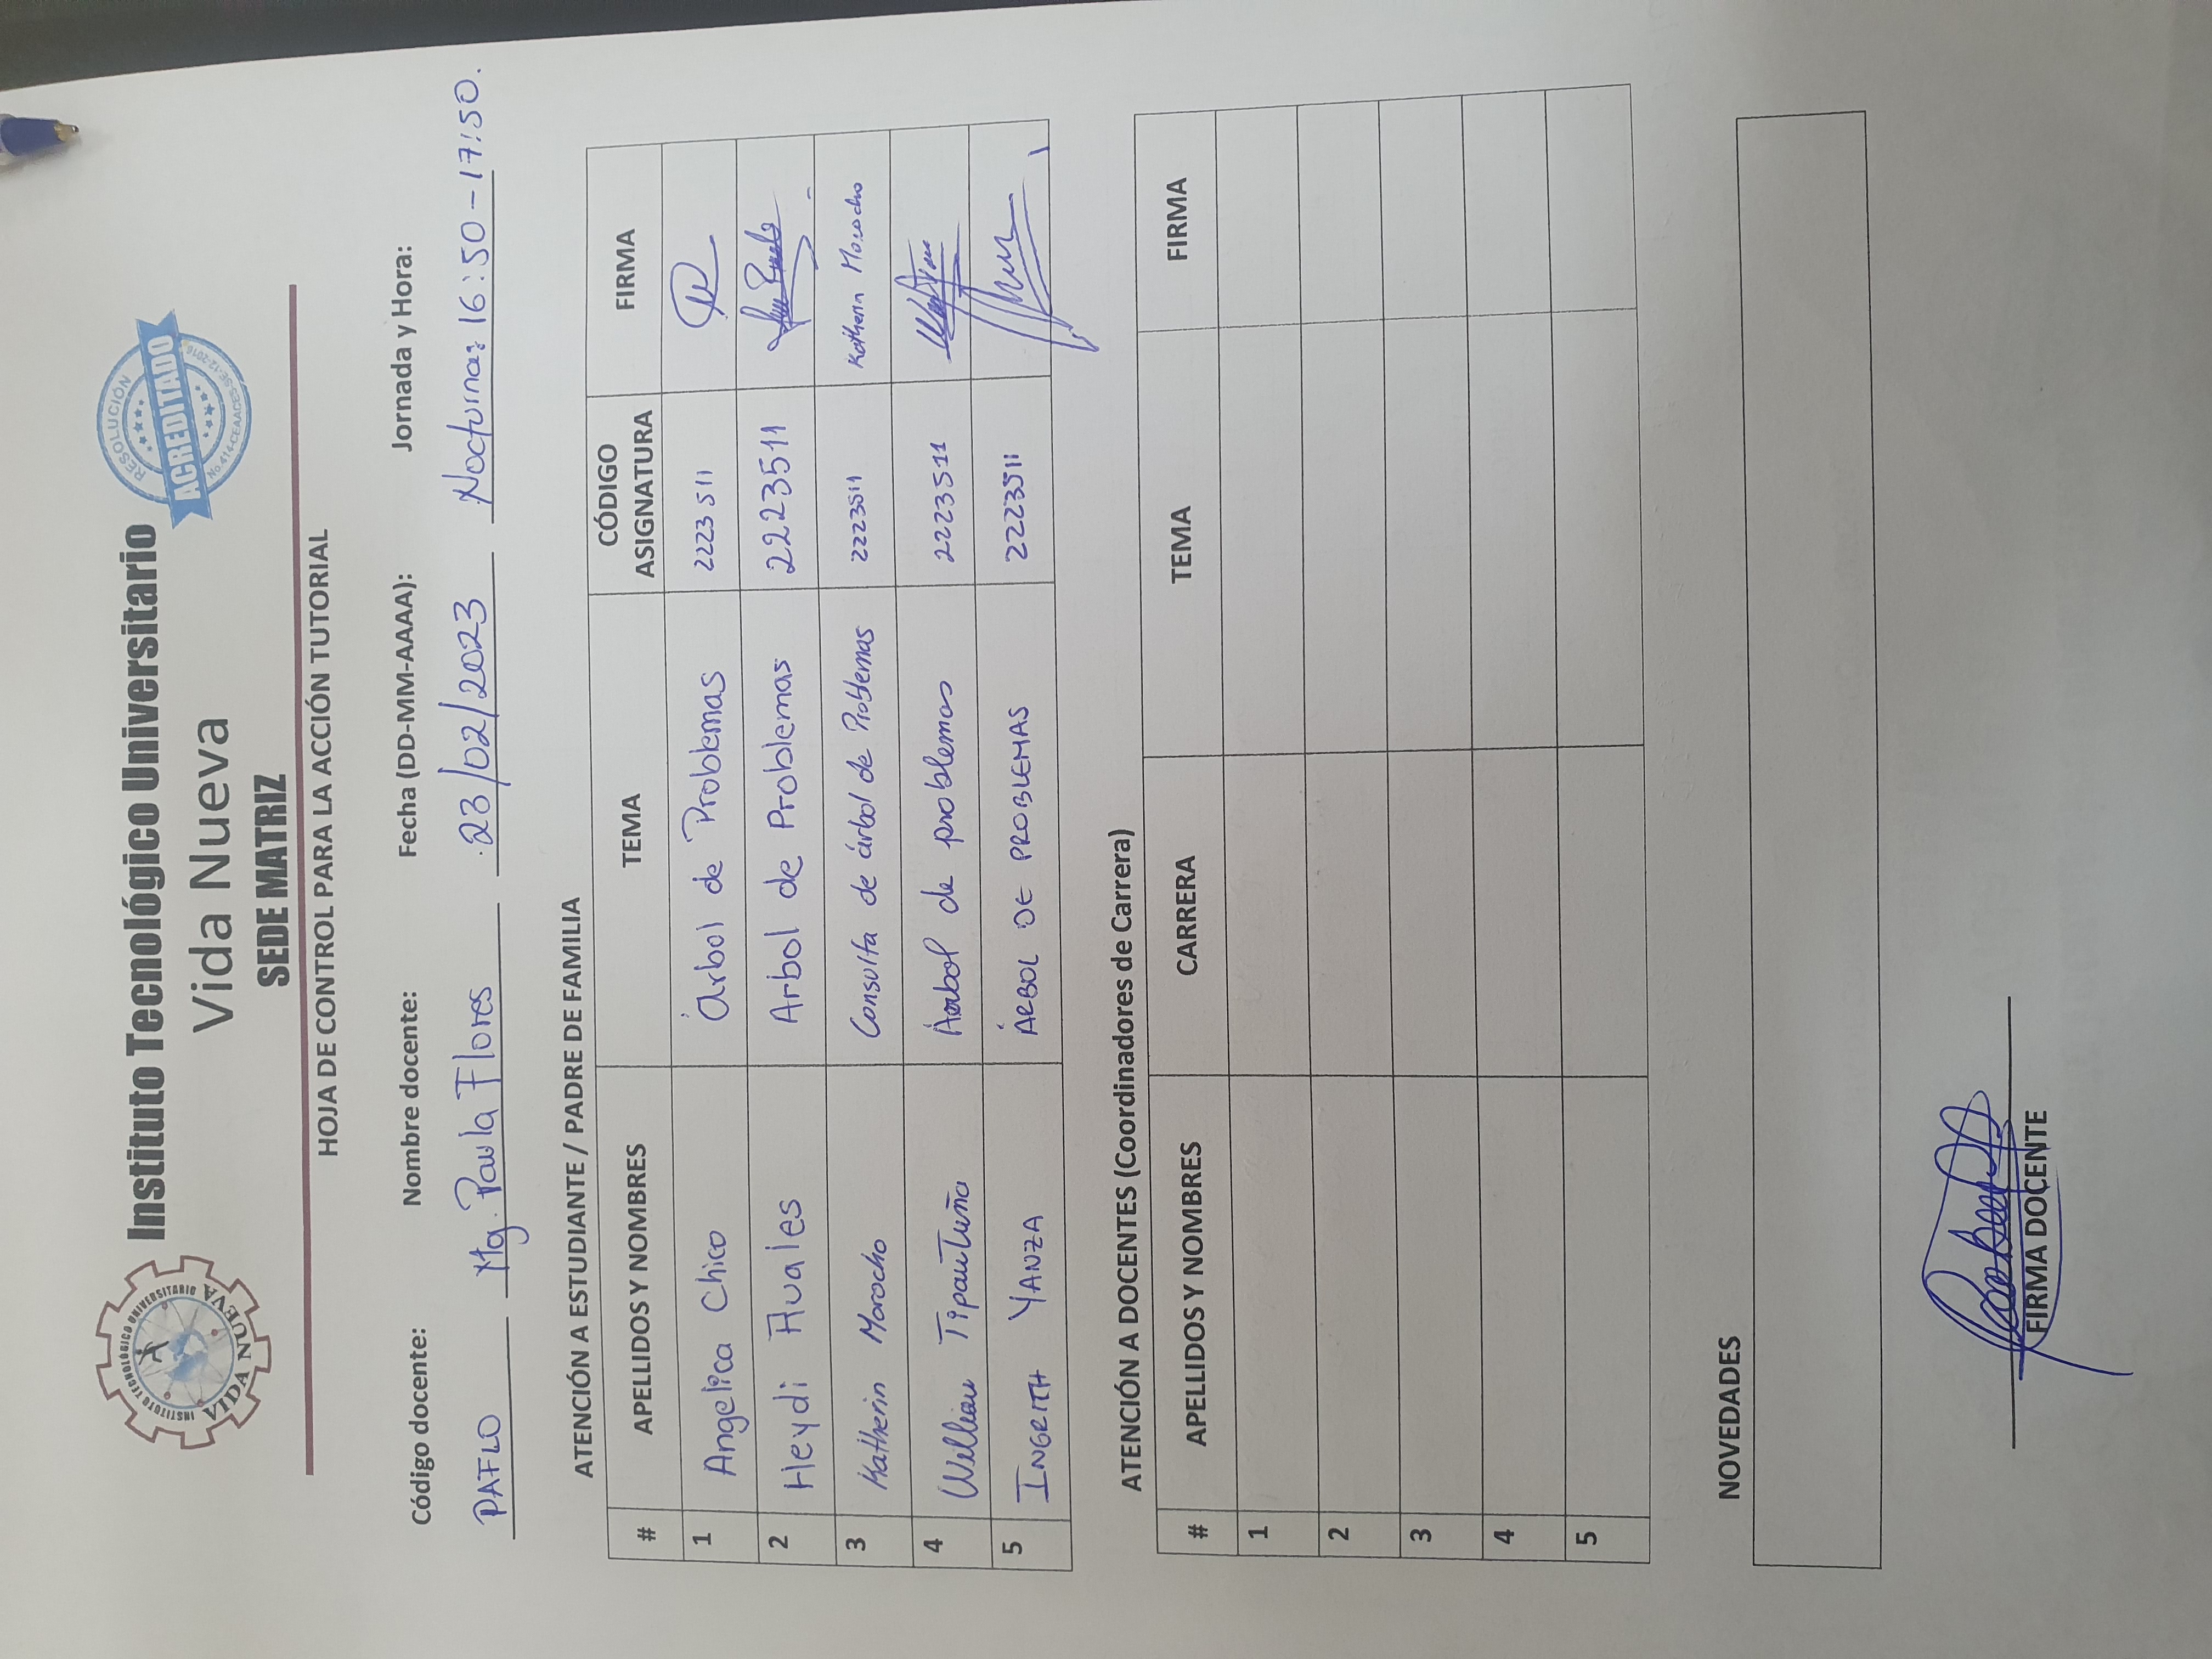 INSTITUTO TECNOLÓGICO UNIVERSITARIO
VIDA NUEVA
Instituto Tecnológico Universitario
Vida Nueva
SEDE MATRIZ
RESOLUCIÓN
ACREDITADO
No.414-CEAACES-SE-12-2016
HOJA DE CONTROL PARA LA ACCIÓN TUTORIAL
Código docente: Nombre docente: Fecha (DD-MM-AAAA): Jornada y Hora:
PAFLO Mg. Paula Flores 23/02/2023 Nocturna: 16:50 - 17:50.
ATENCIÓN A ESTUDIANTE / PADRE DE FAMILIA
# APELLIDOS Y NOMBRES TEMA CÓDIGO ASIGNATURA FIRMA
1 Angelica Chico Árbol de Problemas 2223511
2 Heydi Ruales Arbol de Problemas 2223511
3 Katherin Morocho Consulta de árbol de Problemas 2223511 Katherin Morocho
4 Willian Tipantuña Árbol de problemas 2223511
5 INGRITH YANZA ÁRBOL DE PROBLEMAS 2223511
ATENCIÓN A DOCENTES (Coordinadores de Carrera)
# APELLIDOS Y NOMBRES CARRERA TEMA FIRMA
1
2
3
4
5
NOVEDADES
FIRMA DOCENTE